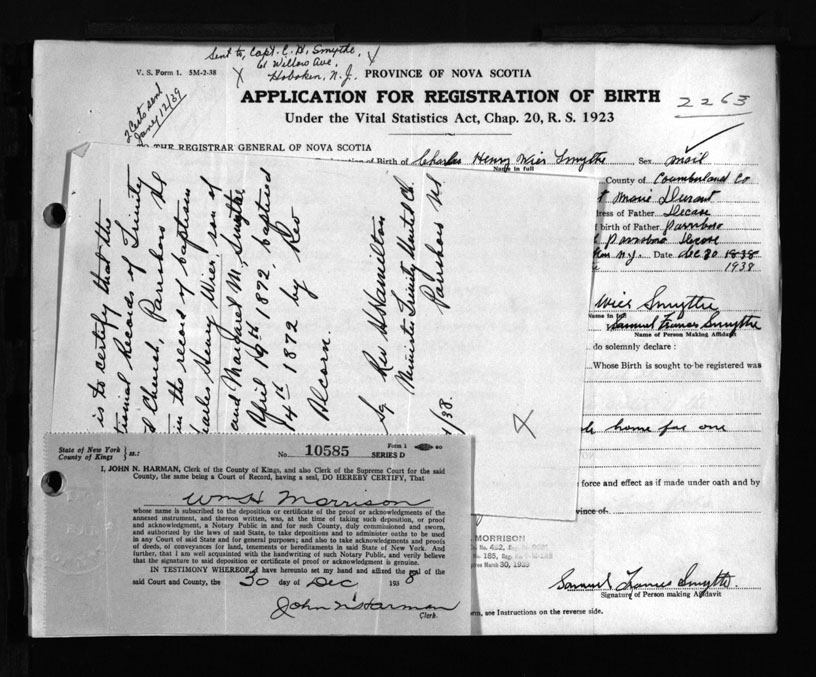 Sent to, Capt. C. H. Smythe,
61 Willow Ave,
Hoboken, N. J.
V. S. Form 1. 5M-2-38
PROVINCE OF NOVA SCOTIA
APPLICATION FOR REGISTRATION OF BIRTH
2263
Under the Vital Statistics Act, Chap. 20, R. S. 1923
2 Certs send
Jany 12/39
TO THE REGISTRAR GENERAL OF NOVA SCOTIA
of Birth of Charles Henry Wier Smythe Sex mail
Name in full
County of Coumberland Co
Marie Durant
ress of Father Decase
f birth of Father Parrsboro
Parrsboro Decase
N.J. Date dec 30 1838
1938
Wier Smythe
Name in full
Samuel Francis Smythe
Name of Person Making Affidavit
do solemnly declare :
Whose Birth is sought to be registered was
home for one
force and effect as if made under oath and by
ince of
MORRISON
March 30, 1939
Samuel Francis Smythe
Signature of Person making Affidavit
rm, see Instructions on the reverse side.
is to certify that the
Records of Trinity
d Church, Parrsboro NS
in the record of baptism
Charles Henry Wier, son of
and Margaret M. Smythe
April 19th 1872, baptised
14th 1872 by Rev
Alcorn.
Sg Rev W Hamilton
Minister Trinity United Ch
Parrsboro NS
/38.
X
State of New York
County of Kings
ss.:
No. 10585
Form 1
SERIES D
I, JOHN N. HARMAN, Clerk of the County of Kings, and also Clerk of the Supreme Court for the said
County, the same being a Court of Record, having a seal, DO HEREBY CERTIFY, That
Wm H Morrison
whose name is subscribed to the deposition or certificate of the proof or acknowledgments of the
annexed instrument, and thereon written, was, at the time of taking such deposition, or proof
and acknowledgment, a Notary Public in and for such County, duly commissioned and sworn,
and authorized by the laws of said State, to take depositions and to administer oaths to be used
in any Court of said State and for general purposes; and also to take acknowledgments and proofs
of deeds, of conveyances for land, tenements or hereditaments in said State of New York. And
further, that I am well acquainted with the handwriting of such Notary Public, and verily believe
that the signature to said deposition or certificate of proof or acknowledgment is genuine.
IN TESTIMONY WHEREOF, I have hereunto set my hand and affixed the seal of the
said Court and County, the 30 day of Dec 1938
John N Harman
Clerk.